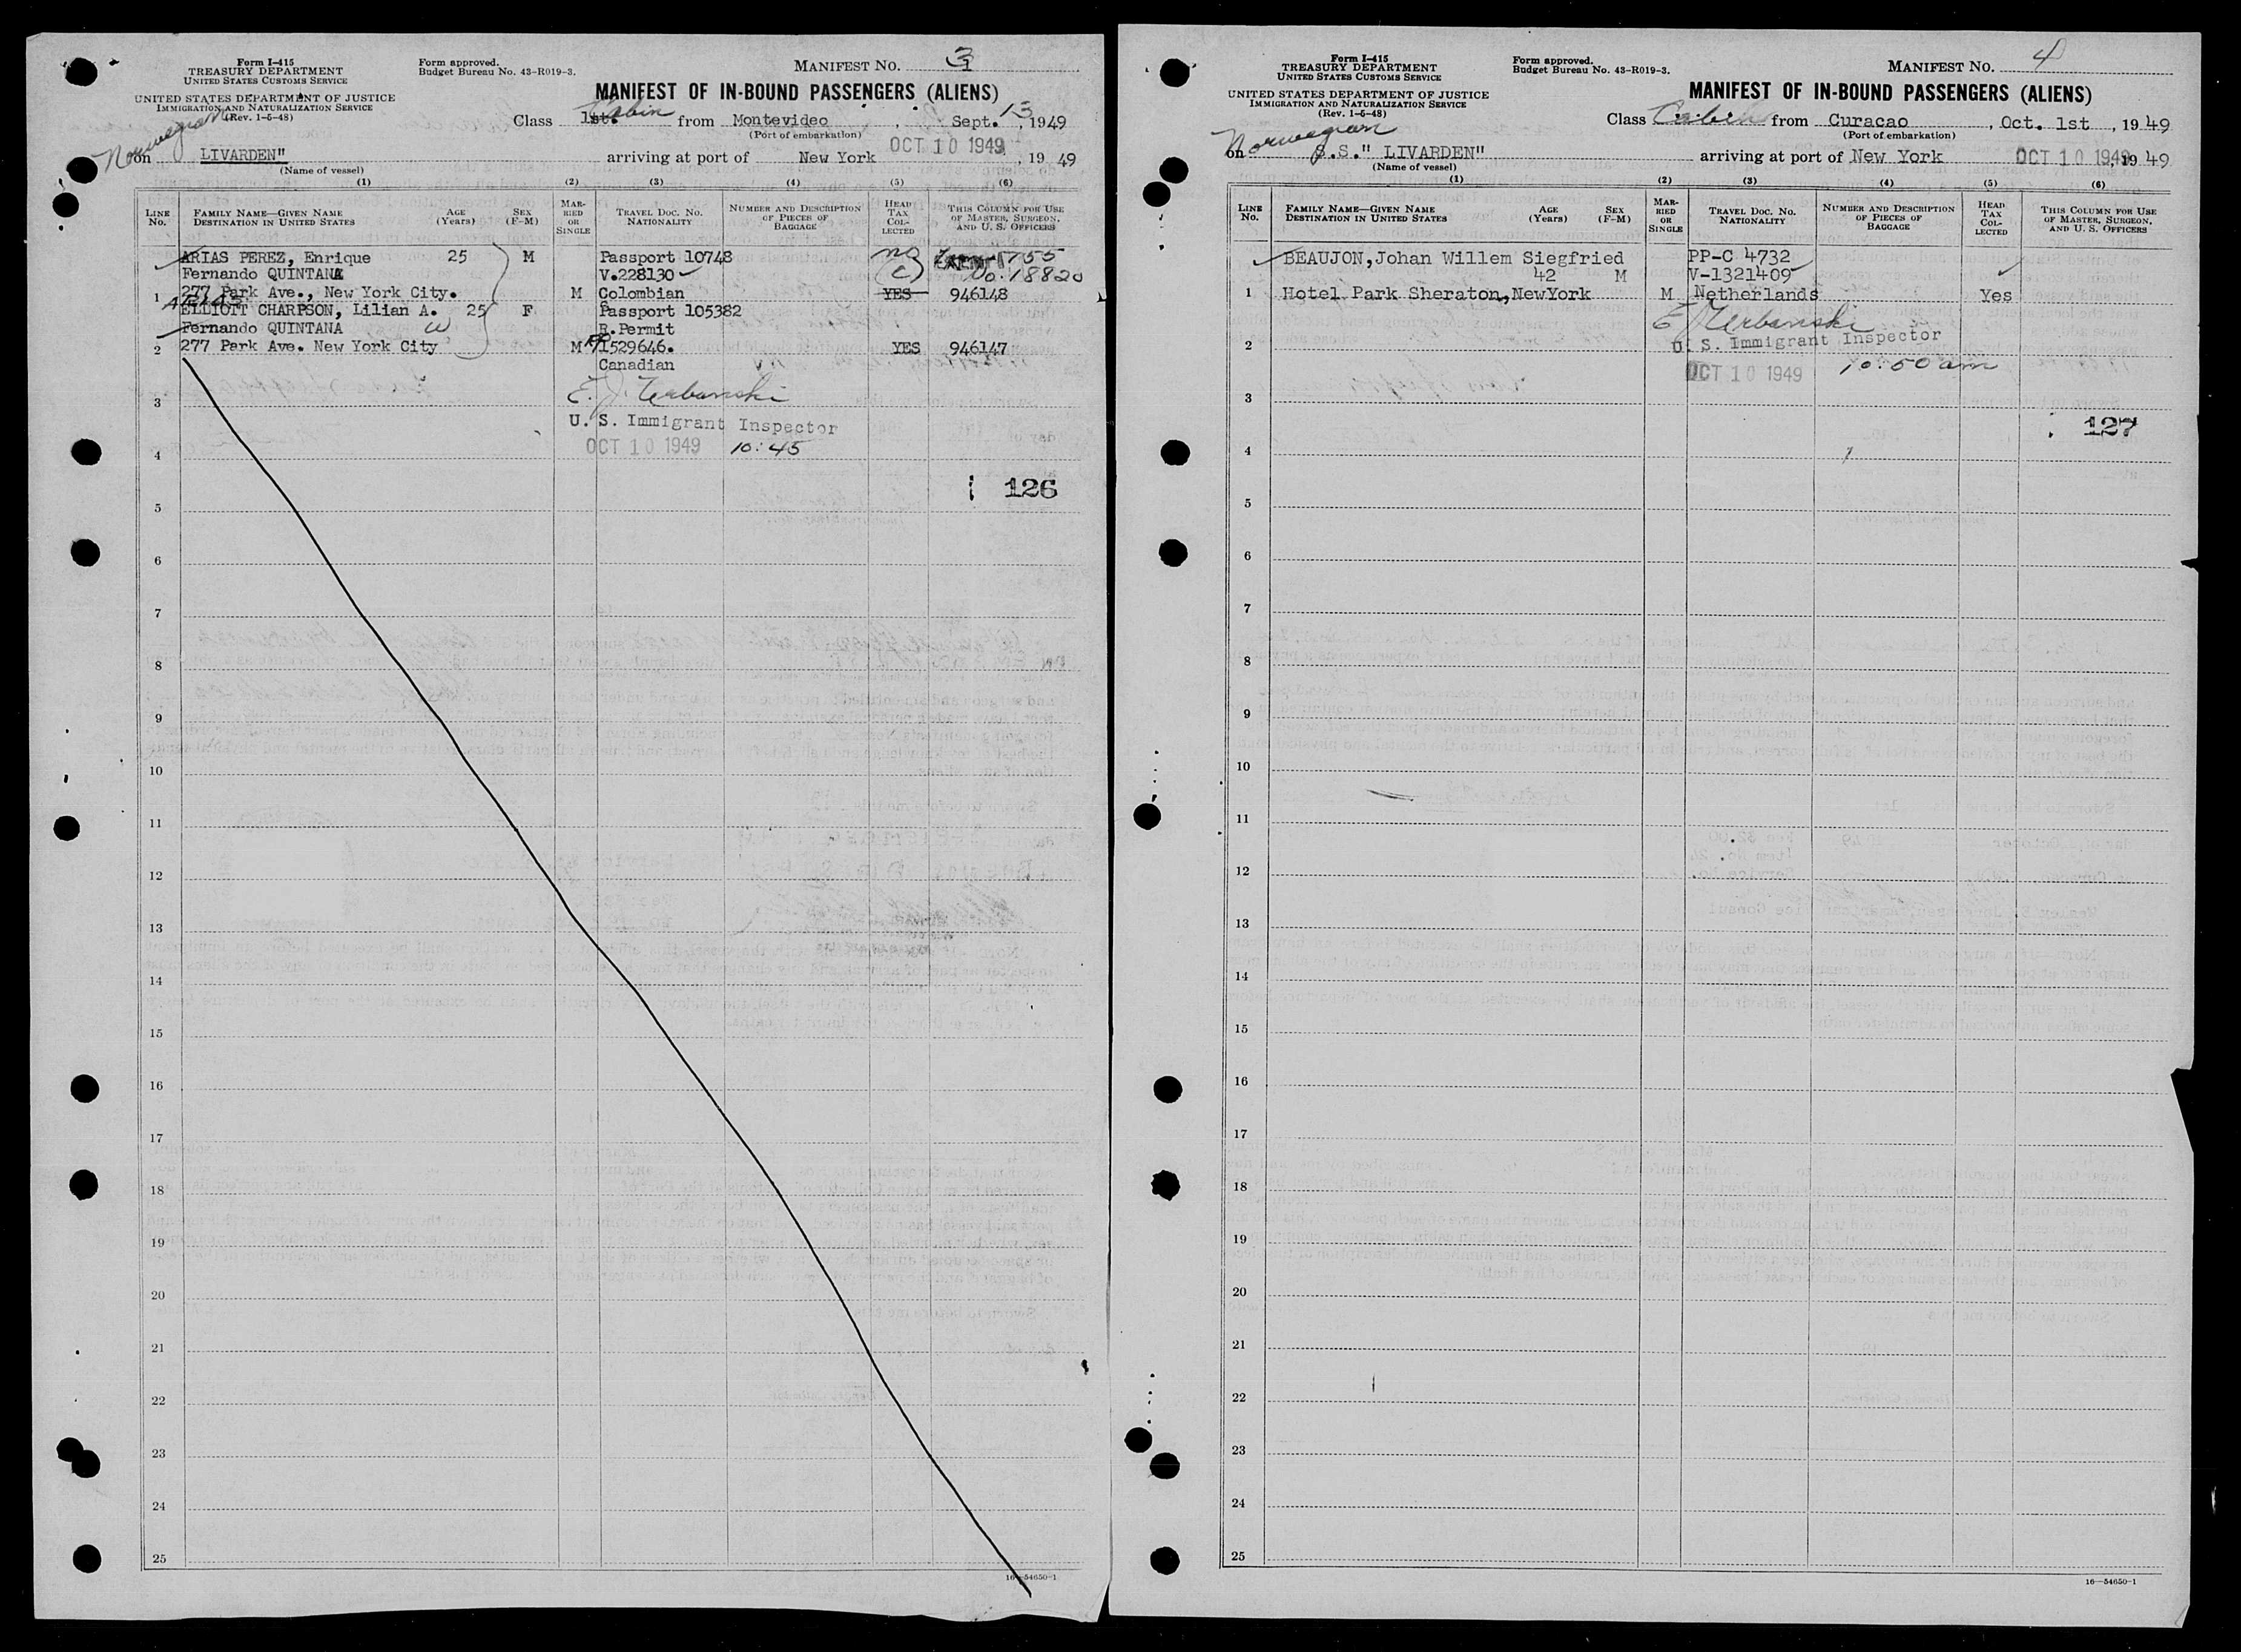 Form I-415
TREASURY DEPARTMENT
UNITED STATES CUSTOMS SERVICE
UNITED STATES DEPARTMENT OF JUSTICE
IMMIGRATION AND NATURALIZATION SERVICE
(Rev. 1-5-48)
Form approved.
Budget Bureau No. 43-R019-3.
MANIFEST NO. 3
MANIFEST OF IN-BOUND PASSENGERS (ALIENS)
Class 1st. Cabin from Montevideo, Sept. 13, 1949
(Port of embarkation)
Norwegian
on LIVARDEN" arriving at port of New York OCT 10 1949, 1949
(Name of vessel)
(1) (2) (3) (4) (5) (6)
LINE No.
FAMILY NAME—GIVEN NAME
DESTINATION IN UNITED STATES
AGE (Years)
SEX (F-M)
MARRIED OR SINGLE
TRAVEL DOC. NO.
NATIONALITY
NUMBER AND DESCRIPTION OF PIECES OF BAGGAGE
HEAD TAX COLLECTED
THIS COLUMN FOR USE OF MASTER, SURGEON, AND U. S. OFFICERS
ARIAS PEREZ, Enrique 25 M Passport 10748
Fernando QUINTANA V.228130 18820
1 277 Park Ave., New York City. M Colombian YES 946148
ELLIOTT CHARPSON, Lilian A. 25 F Passport 105382
Fernando QUINTANA R.Permit
2 277 Park Ave. New York City M 1529646. YES 946147
Canadian
3 E. J. Urbanski
U. S. Immigrant Inspector
4 OCT 10 1949 10:45
126
5
6
7
8
9
10
11
12
13
14
15
16
17
18
19
20
21
22
23
24
25
16—54650-1
Form I-415
TREASURY DEPARTMENT
UNITED STATES CUSTOMS SERVICE
UNITED STATES DEPARTMENT OF JUSTICE
IMMIGRATION AND NATURALIZATION SERVICE
(Rev. 1-5-48)
Form approved.
Budget Bureau No. 43-R019-3.
MANIFEST NO. 4
MANIFEST OF IN-BOUND PASSENGERS (ALIENS)
Class Cabin from Curacao, Oct. 1st, 1949
(Port of embarkation)
Norwegian
on S.S." LIVARDEN" arriving at port of New York OCT 10 1949, 1949
(Name of vessel)
(1) (2) (3) (4) (5) (6)
LINE No.
FAMILY NAME—GIVEN NAME
DESTINATION IN UNITED STATES
AGE (Years)
SEX (F-M)
MARRIED OR SINGLE
TRAVEL DOC. NO.
NATIONALITY
NUMBER AND DESCRIPTION OF PIECES OF BAGGAGE
HEAD TAX COLLECTED
THIS COLUMN FOR USE OF MASTER, SURGEON, AND U. S. OFFICERS
BEAUJON,Johan Willem Siegfried PP-C 4732
42 M V-1321409
1 Hotel Park Sheraton,NewYork M Netherlands Yes
E J Urbanski
2 U. S. Immigrant Inspector
OCT 10 1949 10:50 am
3
127
4
5
6
7
8
9
10
11
12
13
14
15
16
17
18
19
20
21
22
23
24
25
16—54650-1